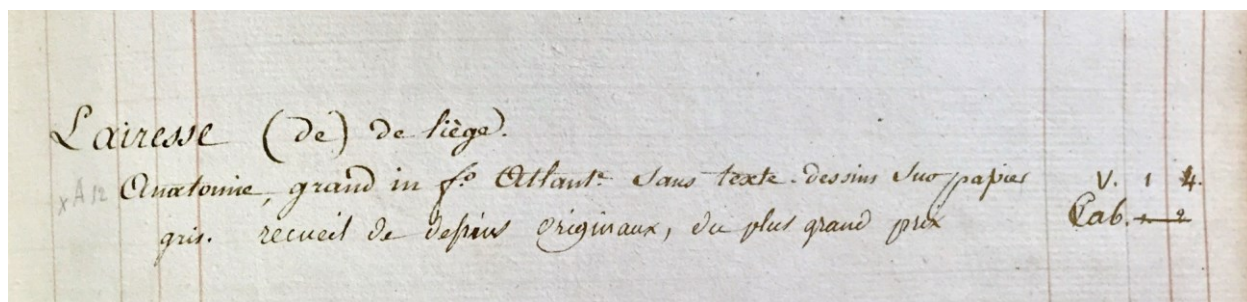 Lairesse (de) de liège.
x A 12 Anatomie, grand in f.o Atlant.e sans texte. dessins sur papier V. 1 4.
gris. recueil de dessins originaux, du plus grand prix Cab. 2